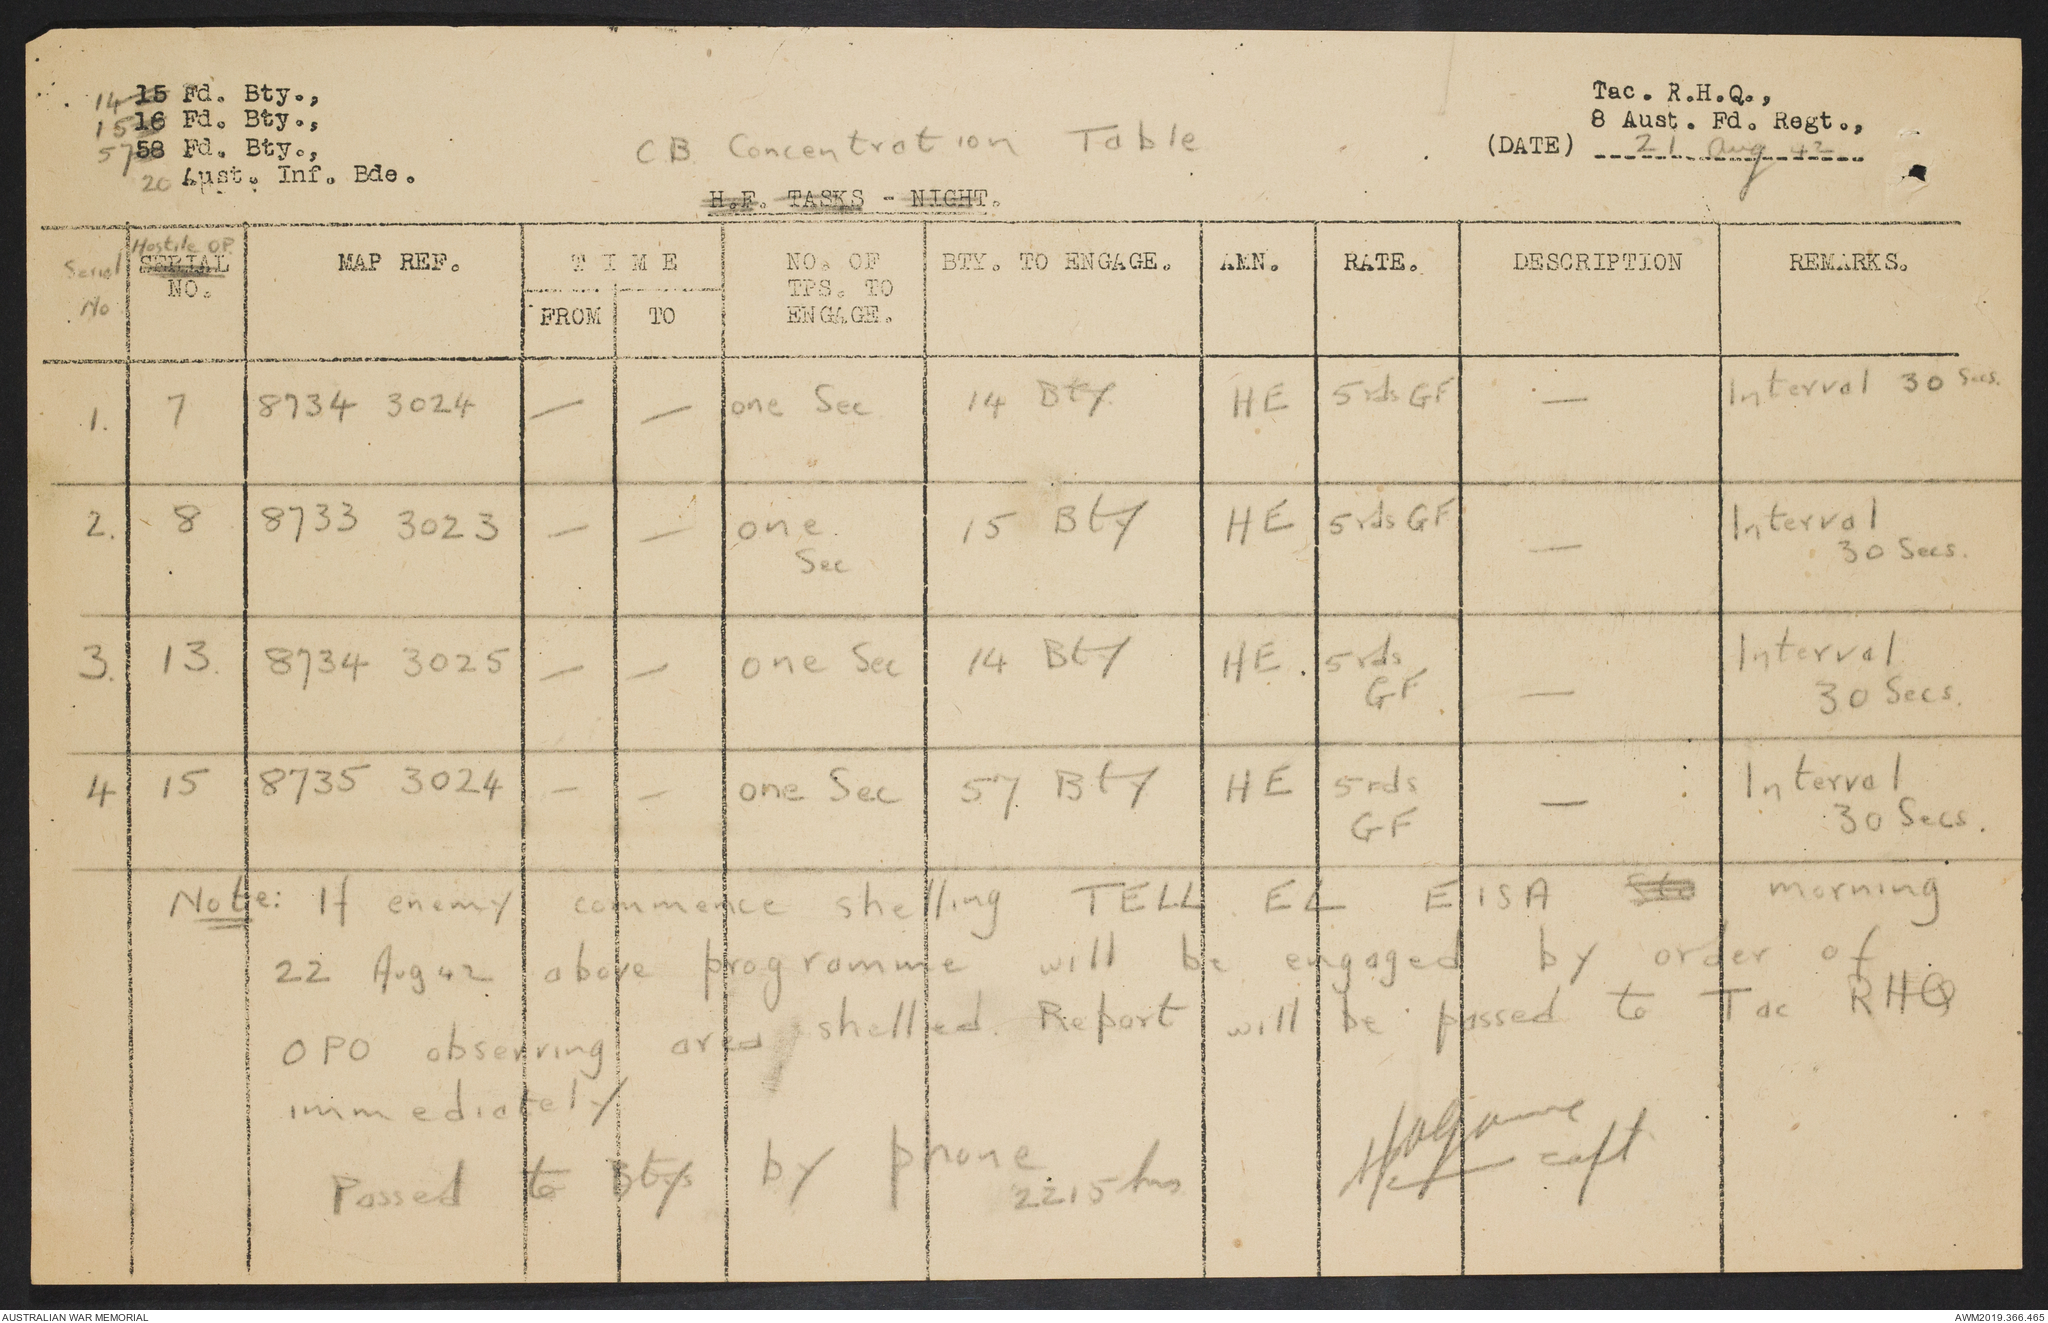 14 15 Fd. Bty.,
15 16 Fd. Bty.,
57 58 Fd. Bty.,
20 Aust. Inf. Bde.
Tac. R.H.Q.,
8 Aust. Fd. Regt.,
(DATE) 21 Aug 42
CB Concentration Table
H.F. TASKS - NIGHT.
Serial No | Hostile OP. SERIAL NO. | MAP REF. | TIME FROM | TO | NO. OF TPS. TO ENGAGE. | BTY. TO ENGAGE. | AMN. | RATE. | DESCRIPTION | REMARKS.
1. 7 8734 3024 — — one Sec 14 Bty. HE 5 rds GF — Interval 30 Secs.
2. 8 8733 3023 — — one Sec 15 Bty HE 5 rds GF — Interval 30 Secs.
3. 13. 8734 3025 — — one Sec 14 Bty HE. 5 rds GF — Interval 30 Secs.
4 15 8735 3024 — — one Sec 57 Bty HE 5 rds GF — Interval 30 Secs.
Note: If enemy commence shelling TELL EL EISA morning
22 Aug 42 above programme will be engaged by order of
OPO observing area shelled. Report will be passed to Tac RHQ
immediately
Passed to Btys by phone
2215 hrs
capt
AUSTRALIAN WAR MEMORIAL
AWM2019.366.465